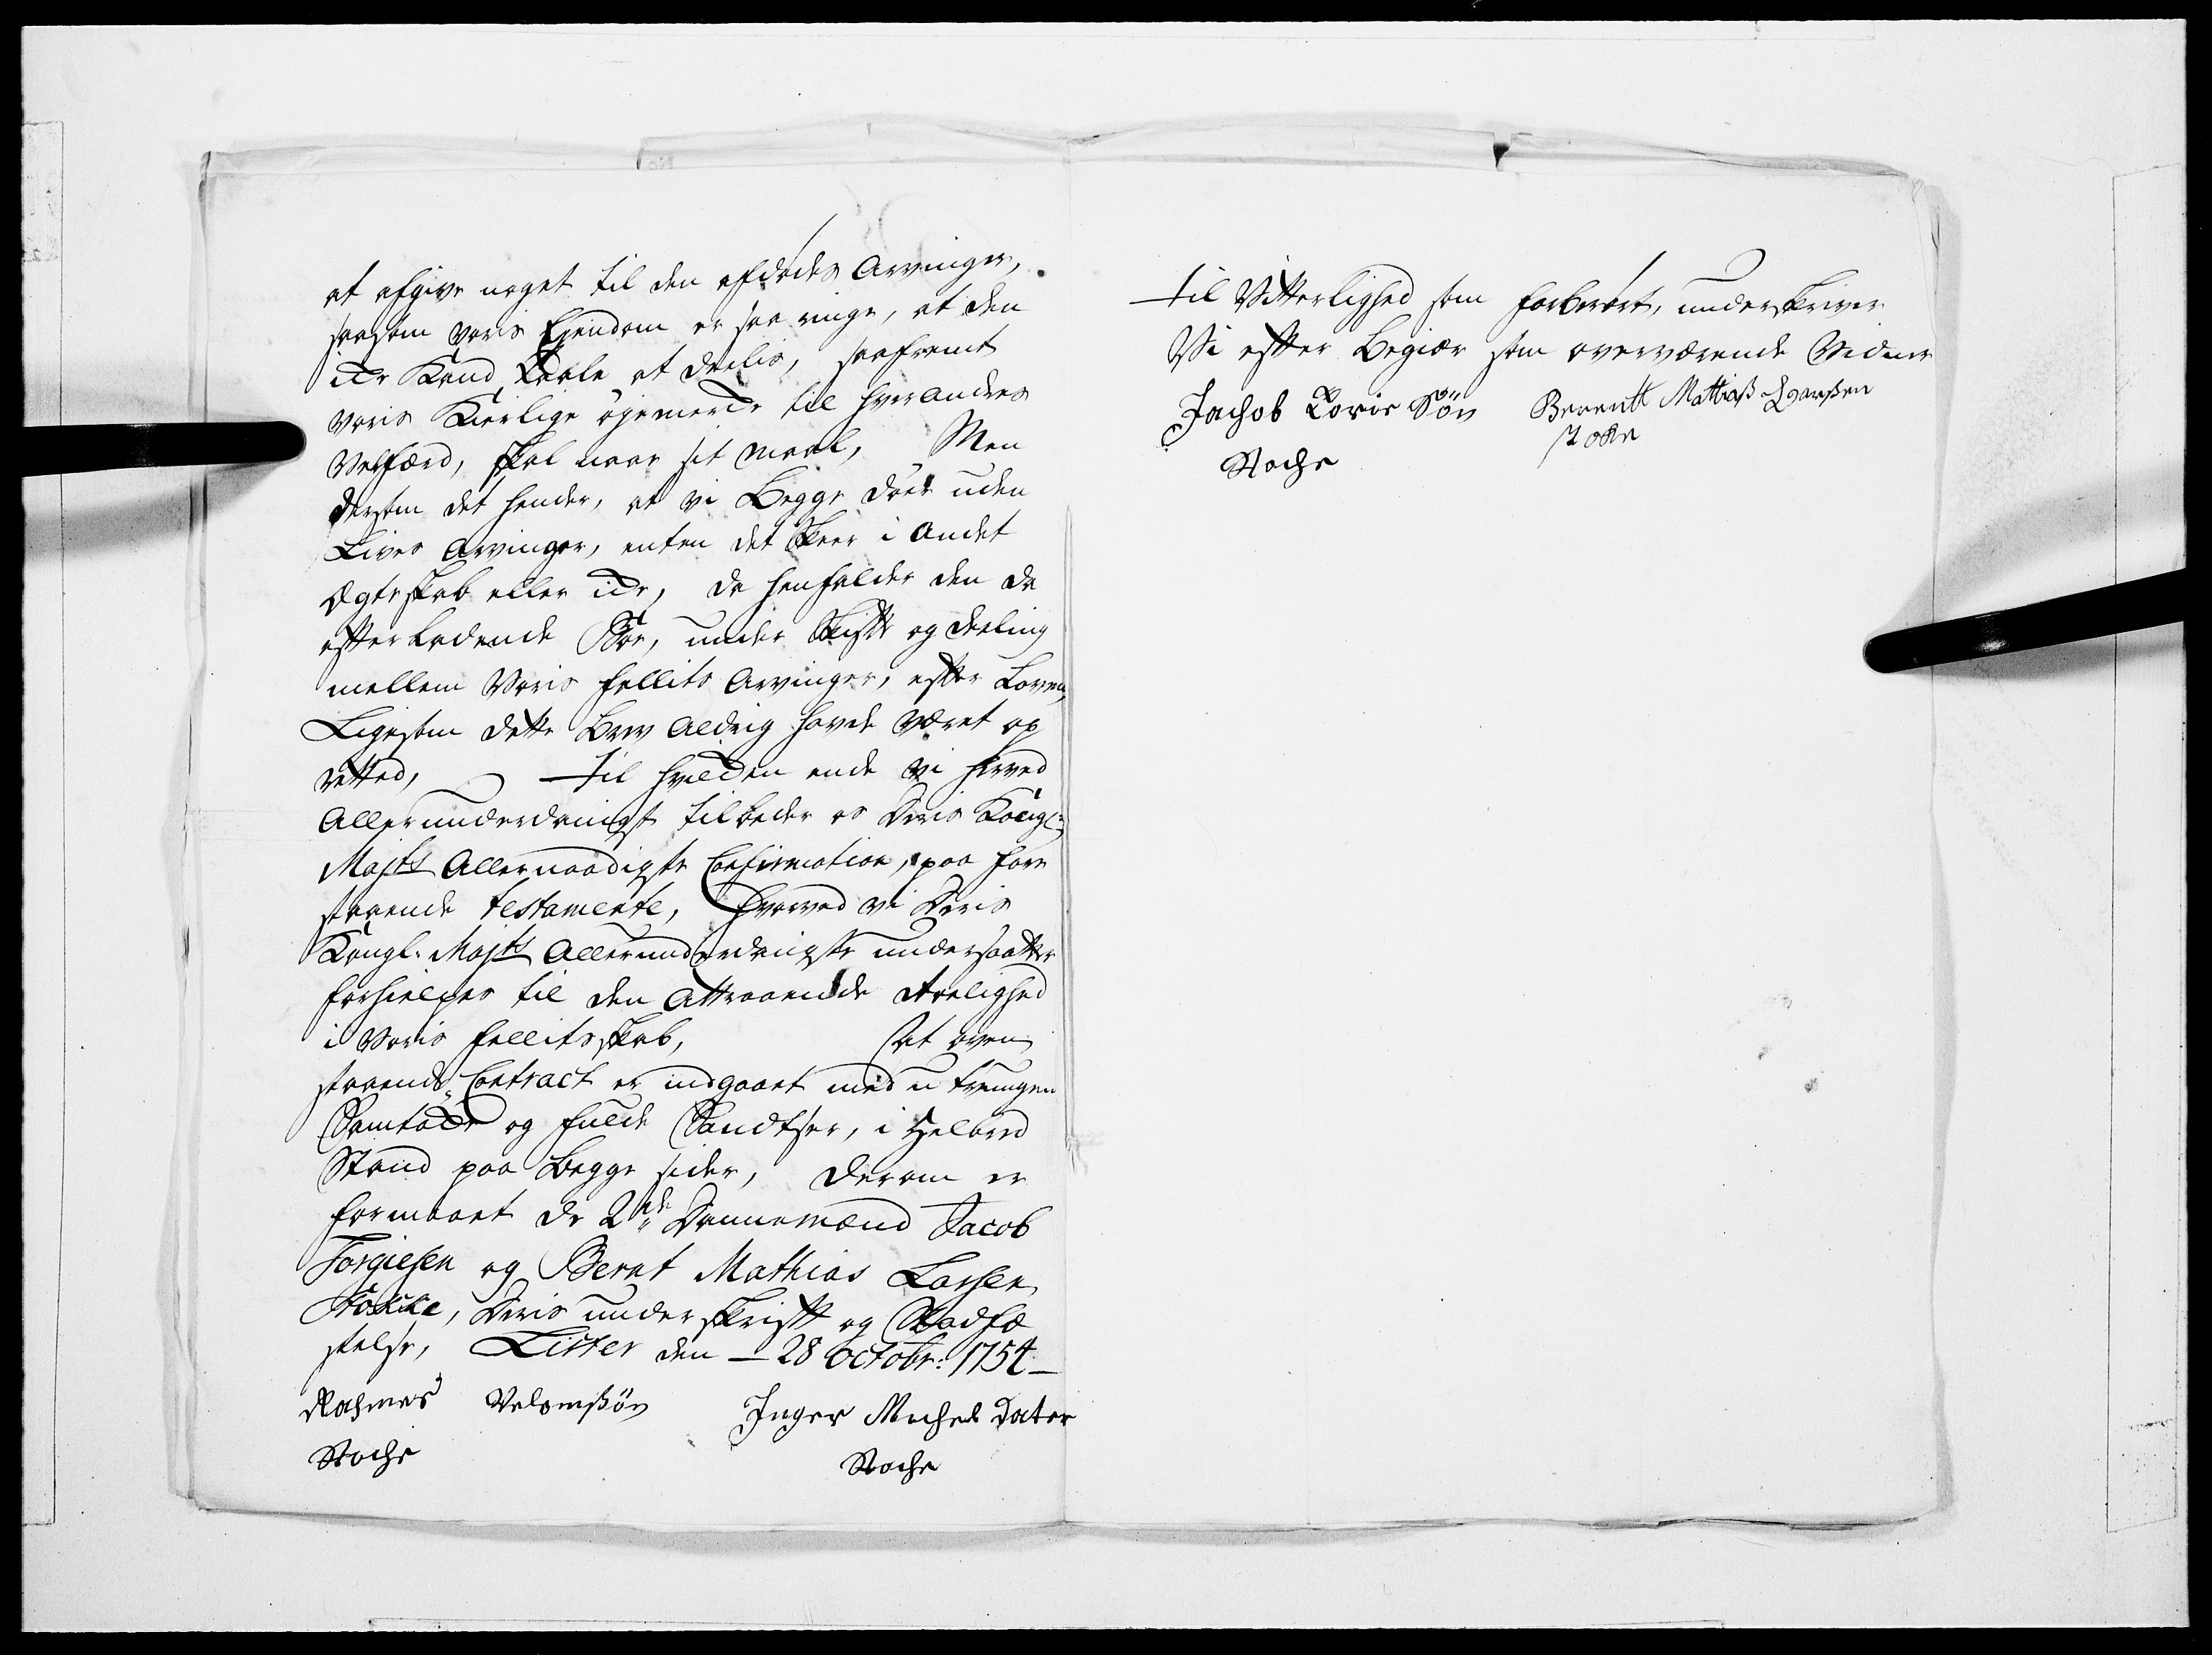 at afgive noget til den afdødes Arvinger,
saasom voris Ejendom er saa ringe, at den
icke Kand taale at deelis, saafremt
voris Kierlige øjemercke til hverandres
Velfærd, skal naae sit maal, Men
dersom det hender, at vi Begge døer uden
Lives Arvinger, enten det skeer i Andet
Ægteskab eller icke, da henfalder den da
efterladende Boe, under Skifte og deeling
mellem Voris fellits Arvinger, efter Loven,
Ligesom dette Brev Aldrig havde været op
retted, til hvilcken ende vi herved
Allerunderdanigst tilbeder os Deris Kongl:
Majts Allernaadigste Confirmation, paa fore
staaende testamente, hvorved vi Deris
Kongl. Majts Allerunderdanigste undersaatter
forhielpes til den Attraaende Roelighed
i Voris fellitsskab, At oven
staaende Contract er indgaaet med u tvungen
Samtøcke og fulde Sandtser, i Helbred
Stand paa Begge sider, derom er
formaaet de 2de Dannemænd Jacob
Torgiesen og Bernt Mathias Larsen
Stokke, Deris underskrift og Stadfæ
stelse, Lister den 28 Octobr: 1754
Rasmus Velomsøn Inger Michels Dater
Stoche Stoche
til Vitterlighed som forberørt, underskriver
Vi efter Begiær som overværende Vidner
Jachob Toris Søn Berentt Mathias Larssen
Stoche Stoke